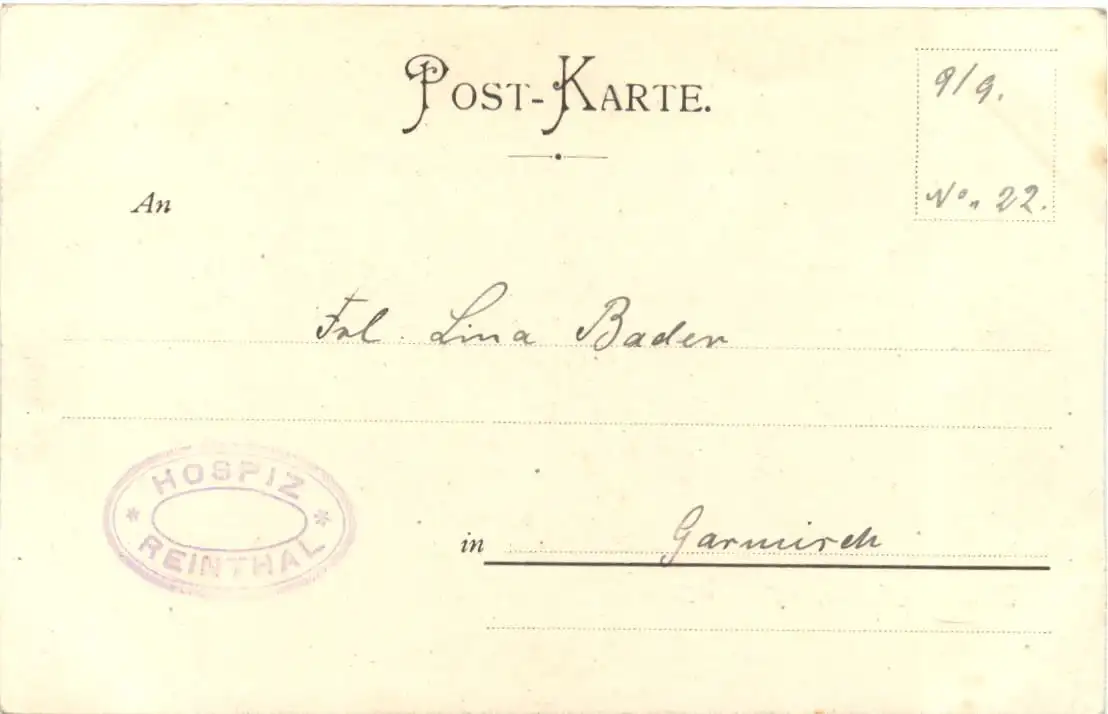 POST-KARTE.
9/9.
An
No. 22.
Frl. Lina Bader
HOSPIZ
* *
REINTHAL
in Garmisch